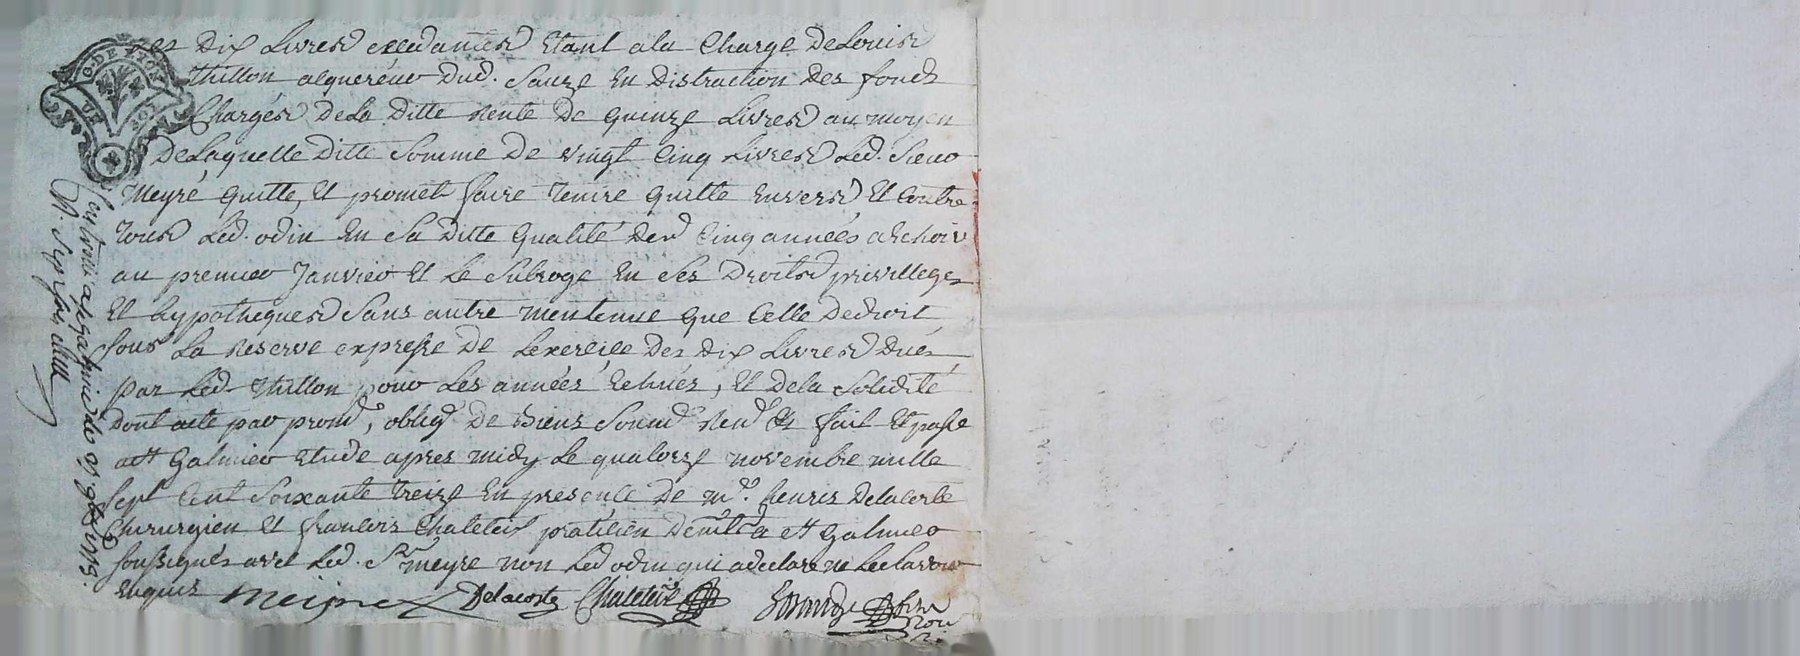 Les Dix Livres excedantes Etant ala Charge De Louis
thillon acquereur dud. Sauze En Distraction Des fonds
Chargés De La Ditte Rente De quinze Livres au moyen
De Laquelle Ditte Somme De vingt Cinq Livres Led. Sieur
Meyre quitte, Et promet faire tenire quitte Envers Et Contre
tous Led. odin En Sa Ditte qualité Des Cinq années a Echoir
au premier Janvier Et Le Subroge En Ses Droits privilleges
Et hypotheques Sans autre mentenue que Celle De droit,
Sous La Reserve expresse De Lexercice Des Dix Livres Dues
par Led. thillon pour Les années Echues, Et De la Solidité
Dont acte par prom., oblig. De Biens Soum. Ren. & fait Et passé
a St Galmier Etude apres midy Le quatorze novembre mille
Sept Cent Soixante treize En presence De Me. Delacoste
Chirurgien Et francois Chaleteix praticien De St Galmier
Soussignés avec Led. Sr. meyre non Led odin qui a declaré ne Le Scavoir
Enquis Meyre Delacoste Chaleteix
Contrôlé a St galmier le
R. Sept sols